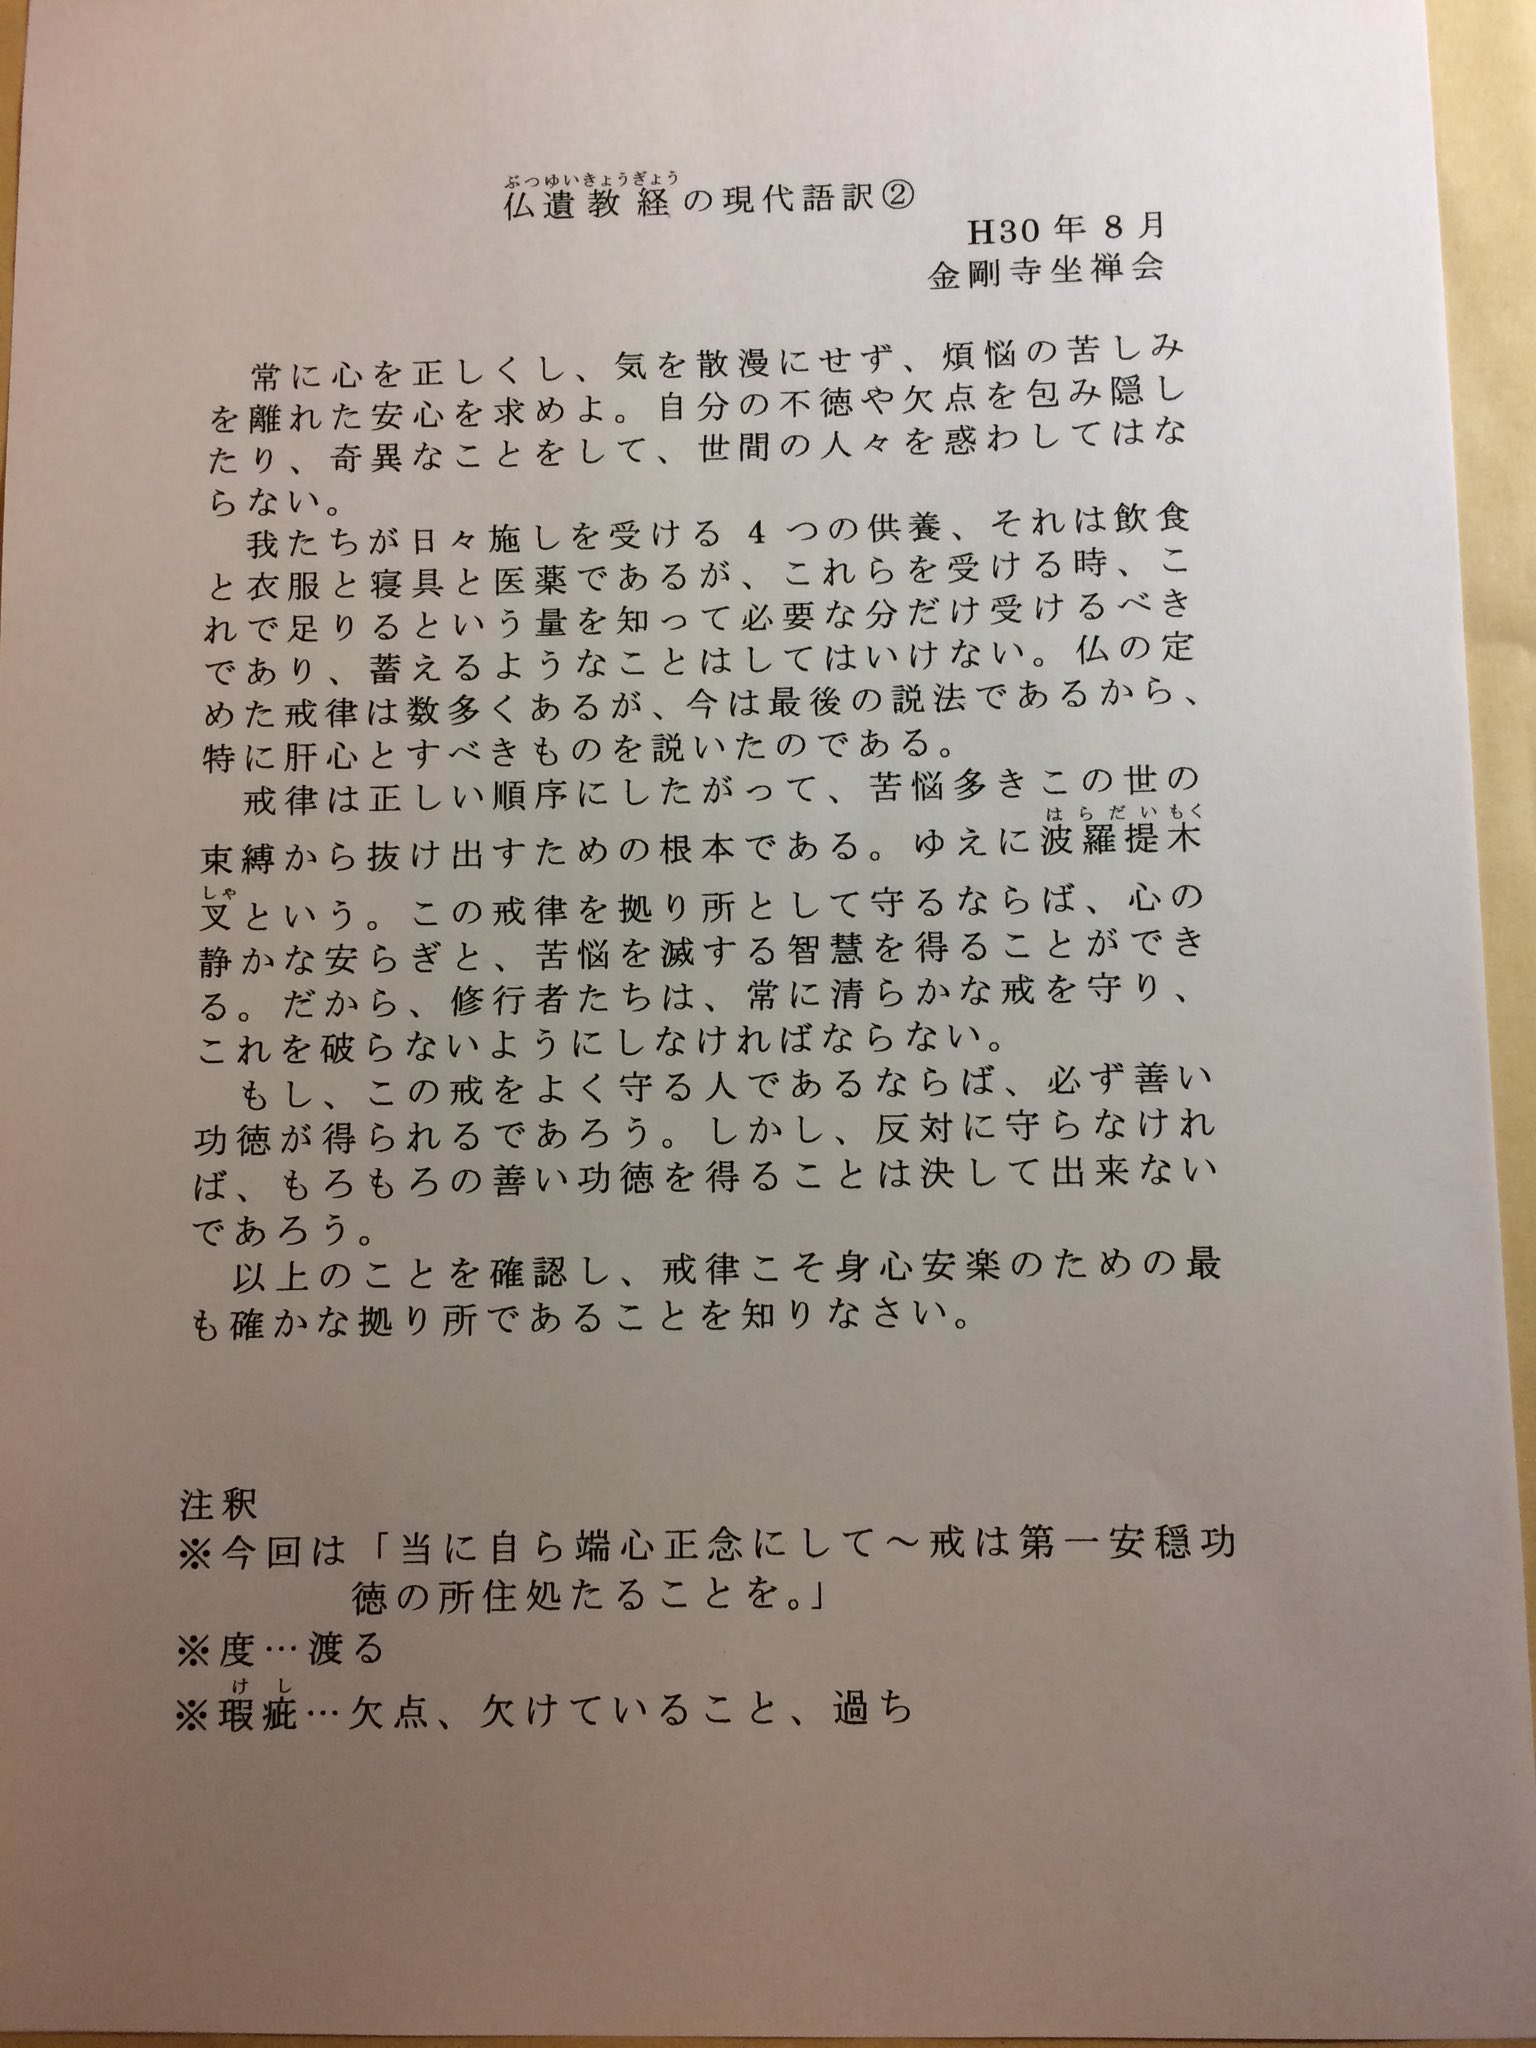 ぶつゆいきょうぎょう
仏遺教経の現代語訳②
H30年8月
金剛寺坐禅会
常に心を正しくし、気を散漫にせず、煩悩の苦しみ
を離れた安心を求めよ。自分の不徳や欠点を包み隠し
たり、奇異なことをして、世間の人々を惑わしてはな
らない。
我たちが日々施しを受ける4つの供養、それは飲食
と衣服と寝具と医薬であるが、これらを受ける時、こ
れで足りるという量を知って必要な分だけ受けるべき
であり、蓄えるようなことはしてはいけない。仏の定
めた戒律は数多くあるが、今は最後の説法であるから、
特に肝心とすべきものを説いたのである。
戒律は正しい順序にしたがって、苦悩多きこの世の
はらだいもく
束縛から抜け出すための根本である。ゆえに波羅提木
しゃ
叉という。この戒律を拠り所として守るならば、心の
静かな安らぎと、苦悩を滅する智慧を得ることができ
る。だから、修行者たちは、常に清らかな戒を守り、
これを破らないようにしなければならない。
もし、この戒をよく守る人であるならば、必ず善い
功徳が得られるであろう。しかし、反対に守らなけれ
ば、もろもろの善い功徳を得ることは決して出来ない
であろう。
以上のことを確認し、戒律こそ身心安楽のための最
も確かな拠り所であることを知りなさい。
注釈
※今回は「当に自ら端心正念にして～戒は第一安穏功
徳の所住処たることを。」
※度…渡る
けし
※瑕疵…欠点、欠けていること、過ち